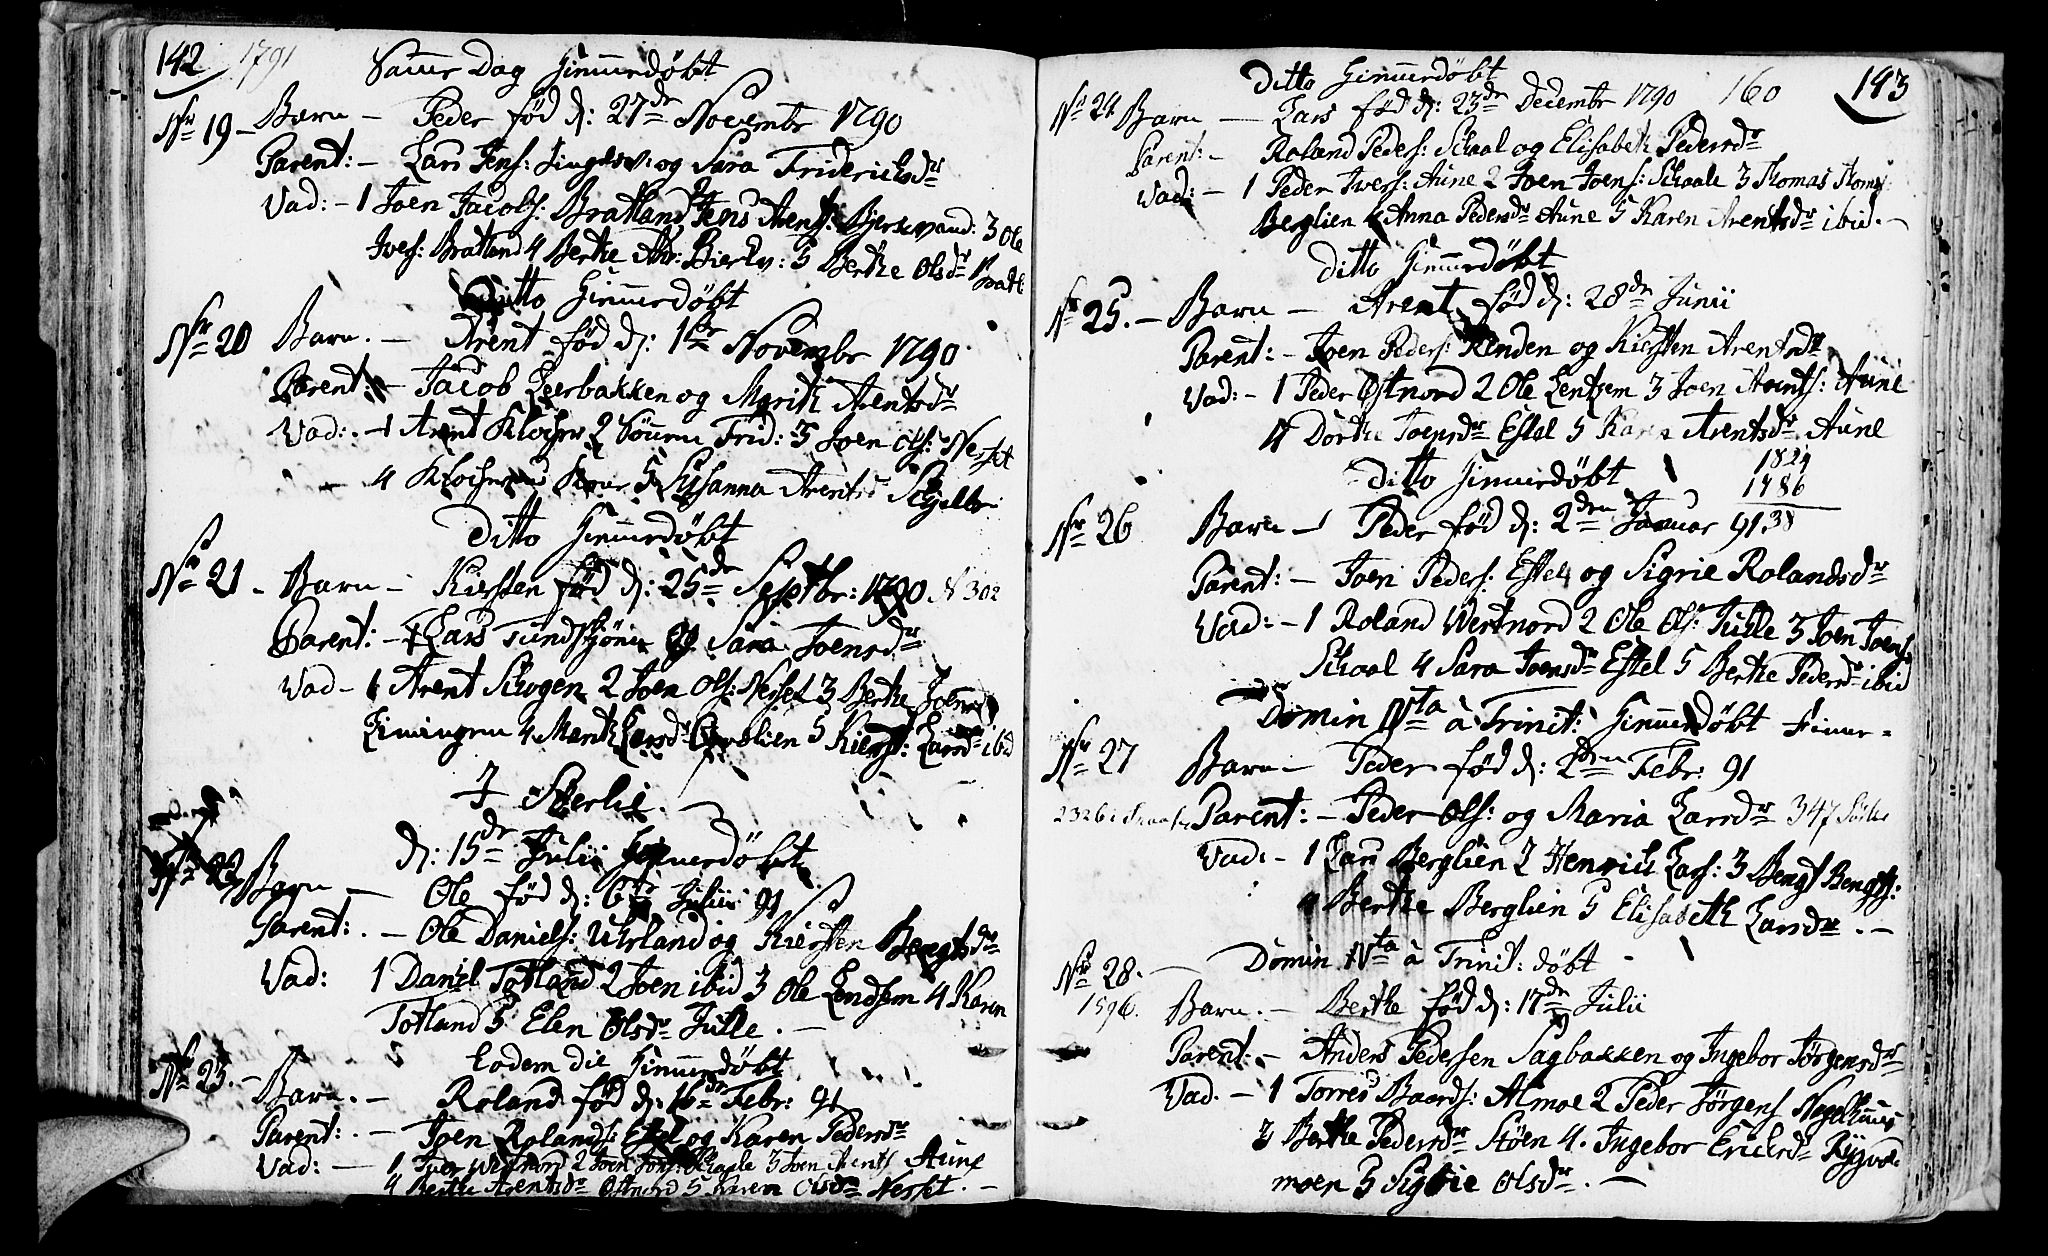 142 1791 Samme Dag Hiemmedøbt
Nr 19 - Barn - Peder fød d: 27de Novembr 1790
Parent: - Lars Jens: og Sara Friderichsdr
Vad: - 1 Joen Jacobs: Bratland Jens Arents: 3 Ole
Ivers: Bratland 4 Berthe 5 Berthe Olsdr Bratl
Ditto Hiemmedøbt
Nr 20 Barn. - Arent fød d: 1ste Novembr 1790
Parent: - Jacob Leerbakken og Marith Arentsdr
Vad: - 1 Arent Klocher 2 Frid: 3 Joen Ols: Nesset
4 5 Susanna Arentsd
Ditto Hiemmedøbt
Nr 21 - Barn - Kiersten fød d: 25de Septbr: 1790 N 302
Parent: - Lars og Sara Joensdr
Vad - 1 Arent Schogen 2 Joen Ols: Nesset 3 Berthe
4 Larsdr 5 Kierst: Larsdr ibid
I Sørlie. -
d: 15de Julii Hiemmedøbt
Nr 22 Barn - Ole fød d: 6te Julii 91
Parent: . - Ole Daniels: og Kiersten Bengtsdr
Vad: 1 Daniel Totland 2 Joen ibid 3 Ole Lendsem 4 Karen
Totland 5 Elen Olsdr Julle . -
Eodem die Hiemmedøbt
Nr 23. - Barn. - Roland fød d: 16de Febr: 91
Parent: . - Joen Rolands: Estel og Karen Pedersdr
Vad: - 1 Iver Westnord 2 Joen Jons: Schaale 3 Joen Arents Aune
4 Berthe Arentsdr Østnord 5 Karen Olsdr Nesset. -
Ditto Hiemmedøbt 160 143
Nr 24 Barn - Lars fød d: 23de Decembr 1790
Parent: - Roland Peders: Schaal og Elisabeth Pedersdr
Vad: - 1 Peder Ivers: Aune 2 Joen Joens: Schaale 3 Thomas
Berglien 4 Anna Pedersdr Aune 5 Karen Arentsdr ibid. -
Ditto Hiemmedøbt
Nr 25. - Barn - Arent fød d: 28de Junii
Parent: - Joen Peders: og Kiersten Arentsdr
Vad: - 1 Peder Østnord 2 Ole Lentsem 3 Joen Arents: Aune
4 Dorthe Joensdr Estel 5 Karen Arentsdr Aune
Ditto Hiemmedøbt 1824
1786
38
Nr 26 Barn - Peder fød d: 2den Januar 91.
Parent: - Joen Peders: Estel og Sigrie Rolandsdr
Vad: - 1 Roland Westnord 2 Ole Ols: Julle 3 Joen Joens:
Schaal 4 Sara Joensdr Estel 5 Berthe Pedersdr ibid
Domin IVta à Trinit: Hiemmedøbt
Nr 27 Barn - Peder fød d: 2den Febr: 91
2326 Parent: - Peder Ols: og Maria Larsdr 347
Vad: - 1 Lars Berglien 2 Henrich Lars: 3 Bengt Bengts:
4 Berthe Berglien 5 Elisabeth Larsdr . -
Nr 28. - Domin IVta à Trinit: døbt
1596. Barn. - Berthe fød d: 17de Julii
Parent: - Anders Pedersen Sagbakken og Ingebor Jørgensdr
Vad. - 1 Torres Baards: Almoe 2 Peder Jørgens
3 Berthe Pedersdr Støen 4. Ingebor Ericksdr
moen 5 Sigrie Olsdr . -